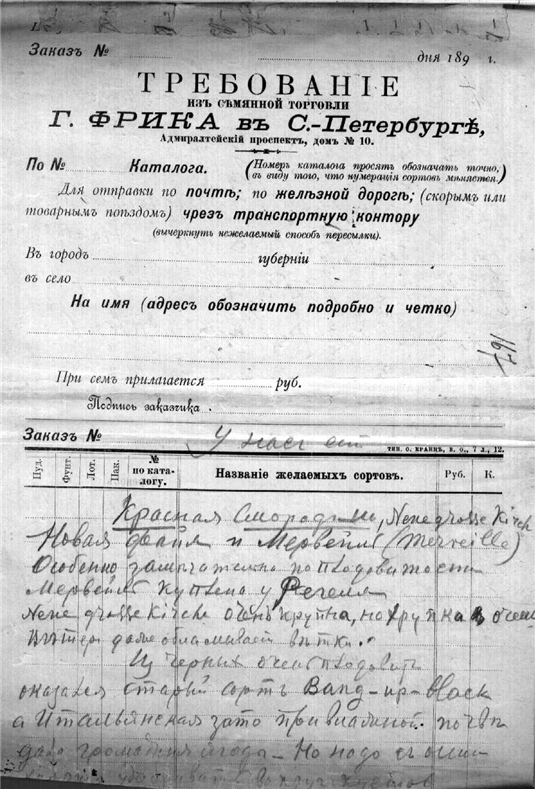 Заказъ № дня 189 г.
ТРЕБОВАНІЕ
ИЗЪ СѢМЯННОЙ ТОРГОВЛИ
Г. ФРИКА въ С.-Петербургѣ,
Адмиралтейскій проспектъ, домъ № 10.
По № Каталога. (Номеръ каталога просятъ обозначать точно,
въ виду того, что нумерація сортовъ мѣняется.)
Для отправки по почтѣ; по желѣзной дорогѣ; (скорымъ или
товарнымъ поѣздомъ) чрезъ транспортную контору
(вычеркнуть нежелаемый способъ пересылки).
Въ городъ губерніи
въ село
На имя (адресъ обозначить подробно и четко)
167
При семъ прилагается руб.
Подпись заказчика
Заказъ № У насъ ТИП. О. КРАНЦЪ, В. О., 7 Л., 12.
Пуд. Фунт. Лот. Пак. № по ката-логу. Названіе желаемыхъ сортовъ. Руб. К.
Красная Смородина, Neue grosse Kirch
Новая и Мервейль (Merveille)
Особенно замѣчательна по плодовитости
Мервейль куплена у Регеля
Neue grosse Kirche очень крупна, но хрупка и очень
вѣтеръ даже обламываетъ вѣтки.
Изъ черныхъ очень плодовитъ
оказался старый сортъ Bang-up-black
а Итальянская зато при влажной почвѣ
даетъ громадныя ягоды - Но надо
вокругъ кустовъ